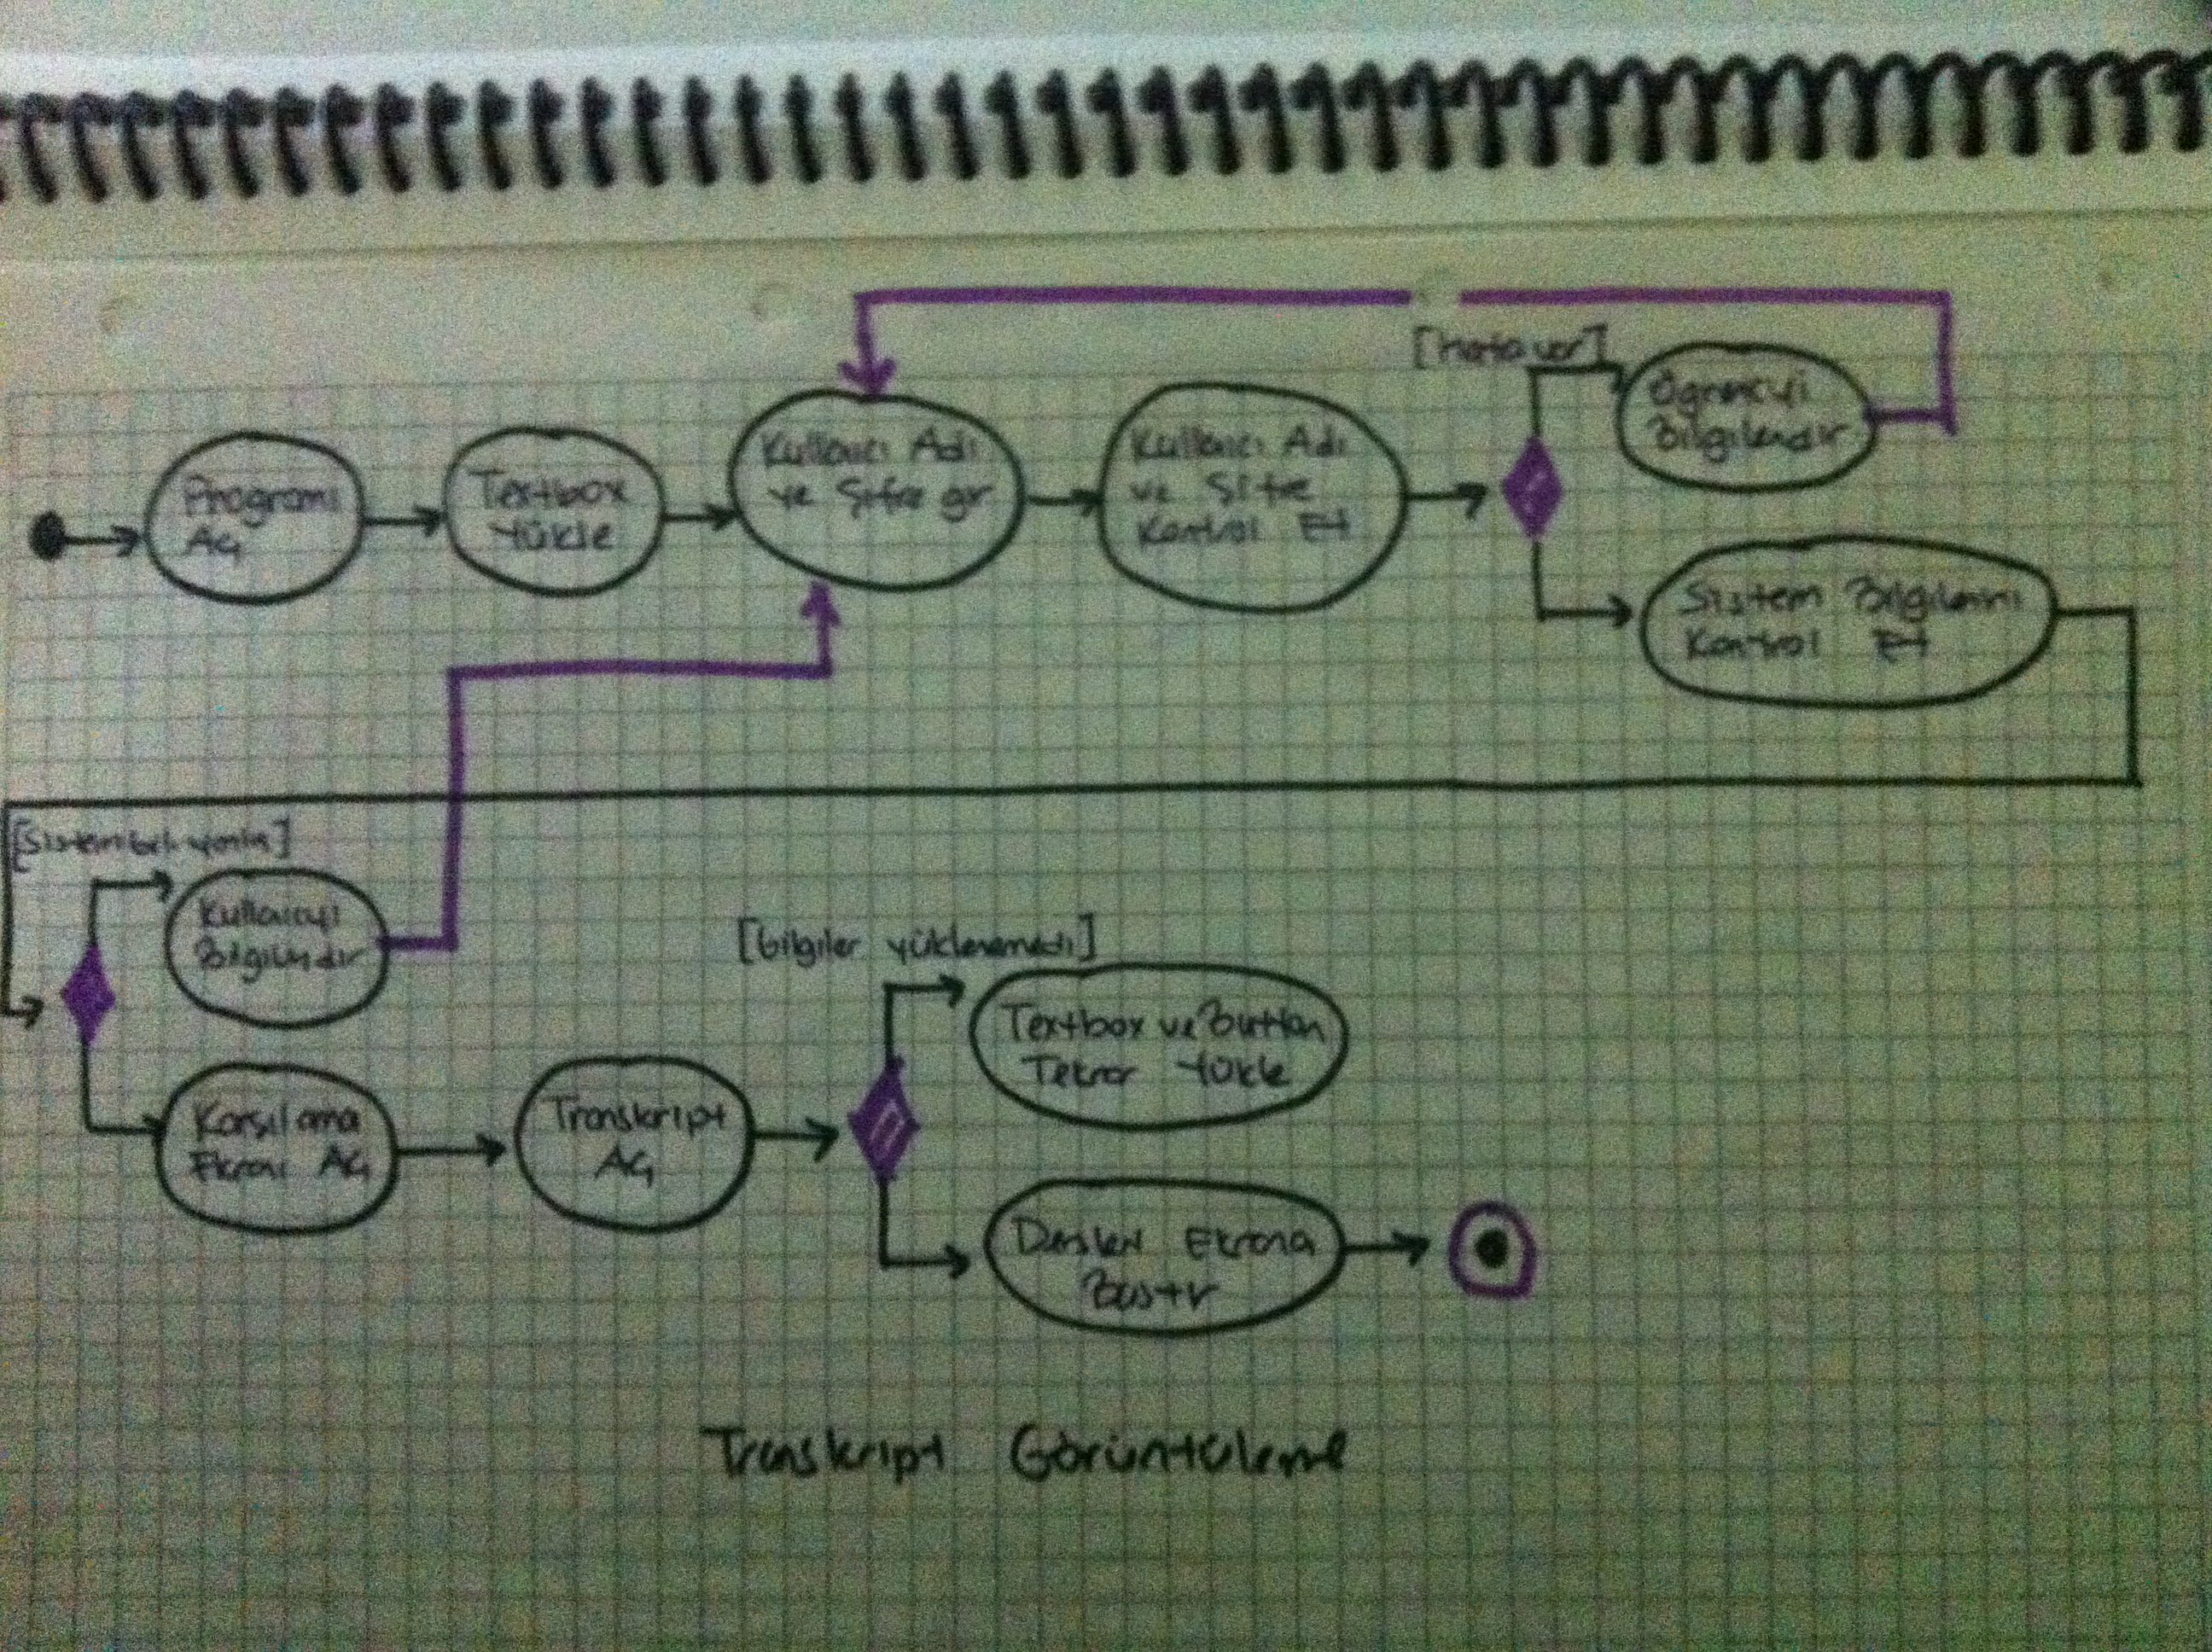 [hata var]
Programı
Aç
Textbox
Yükle
Kullanıcı Adı
ve Şifre gir
Kullanıcı Adı
ve Şifre
Kontrol Et
Öğrenciyi
Bilgilendir
Sistem Bilgilerini
Kontrol Et
Kullanıcıyı
Bilgilendir
Karşılama
Ekranı Aç
Transkript
Aç
[bilgiler yüklenemedi]
Textbox ve Button
Tekrar Yükle
Dersleri Ekrana
Bastır
Transkript Görüntüleme